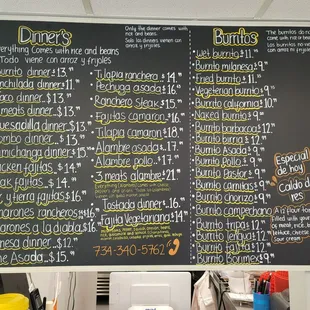 Dinner's
Everything Comes with rice and beans
Todo viene con arroz y frijoles
Burrito dinner $13.
Enchilada dinner $11.
Taco dinner $13.
meats dinner $13.
Quesadilla dinner $13.
Combo dinner $13.
Chimichanga dinner $13.
Chicken fajitas $14.
Steak fajitas $14.
y tierra fajitas $16.
Camarones rancheros $16.
Camarones a la diabla $16.
dinner $12.
Carne Asada $15.
Only the dinner comes with rice and beans.
Solo las dinners vienen con arroz y frijoles
Tilapia ranchera $14.
Pechuga asada $16.
Ranchero steak $15.
Fajitas camaron $16.
Tilapia camaron $18.
Alambre asada $17.
Alambre pollo $17.
3 meats alambre $21.
Tostada dinner $16.
Fajita Vegetariana $14
734-340-5762
Burritos
The burritos do
come with rice and
Los burritos no
con arroz ni frijol
Wet burrito $11
Burrito milanesa $9.
Fried burrito $11.
Vegeterian burrito $9.
Burrito california $10
Naked burrito $9
Burrito barbacoa $12
Burrito birria $12
Burrito Asada $9
Burrito Pollo $9
Burrito Pastor $9
Burrito carnitas $9
Burrito chorizo $9
Burrito campechano
Burrito tripa $12
Burrito lengua $12
Burrito fajita $12
Burrito Bonmex $9
Especial
de hoy
Caldo de
res
Is a flour tor
filled with
of meat, rice, b
lettuce, cheese
sour cream